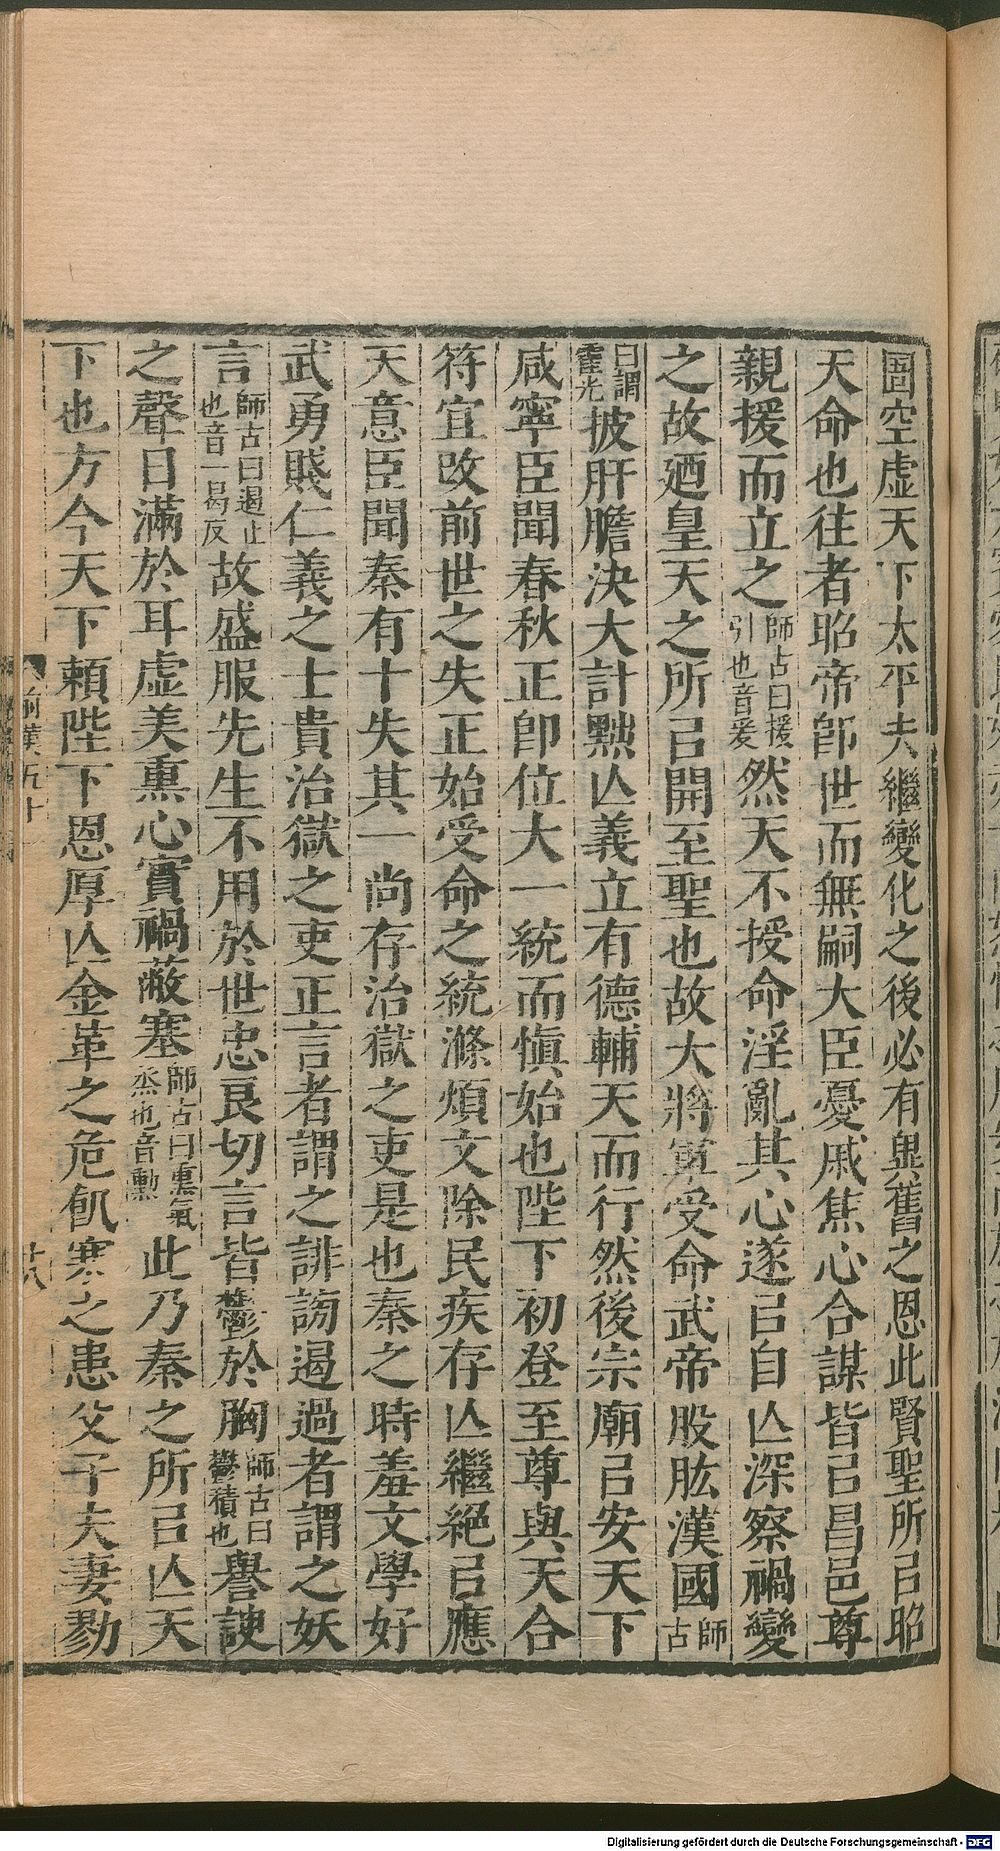 圄空虛天下太平夫繼變化之後必有異舊之恩此賢聖所㠯昭
天命也往者昭帝卽世而無嗣大臣憂戚焦心合謀皆㠯昌邑尊
親援而立之師古曰援引也音爰然天不授命淫亂其心遂㠯自亾深察禍變
之故廼皇天之所㠯開至聖也故大將軍受命武帝股肱漢國師古
曰謂霍光披肝膽決大計黜亾義立有德輔天而行然後宗廟㠯安天下
咸寧臣聞春秋正卽位大一統而愼始也陛下初登至尊與天合
符宜改前世之失正始受命之統滌煩文除民疾存亾繼絕㠯應
天意臣聞秦有十失其一尚存治獄之吏是也秦之時羞文學好
武勇賤仁義之士貴治獄之吏正言者謂之誹謗遏過者謂之妖
言師古曰遏止也音一曷反故盛服先生不用於世忠良切言皆鬱於胸師古曰鬱積也譽諛
之聲日滿於耳虛美熏心實禍蔽塞師古曰熏氣烝也音勳此乃秦之所㠯亾天
下也方今天下賴陛下恩厚亾金革之危飢寒之患父子夫妻勠
前漢五十一
十八
Digitalisierung gefördert durch die Deutsche Forschungsgemeinschaft - DFG